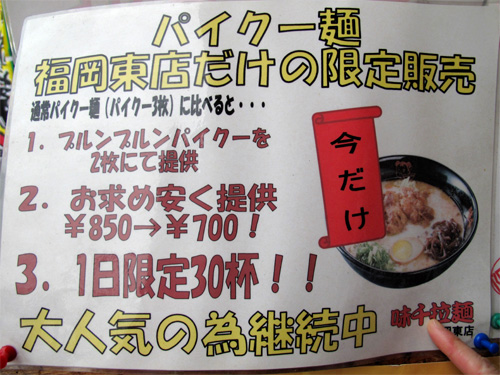 パイクー麺
福岡東店だけの限定販売
通常パイクー麺(パイクー3枚)に比べると・・・
1. プルンプルンパイクーを
2枚にて提供
2. お求め安く提供
￥850→￥700！
3. 1日限定30杯！！
今だけ
大人気の為継続中
味千拉麺
岡東店